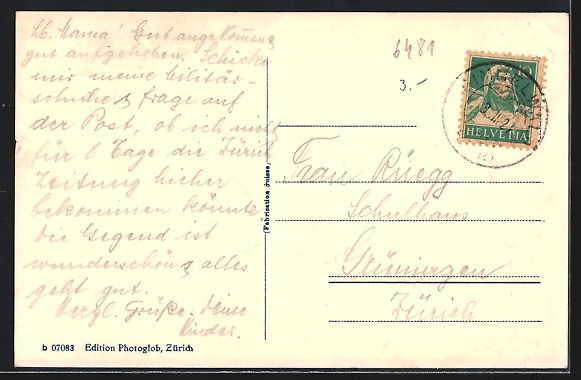 Lb. Mama! Gut angekommen &
gut aufgehoben. Schicke
mir meine Militär-
schuhe & frage auf
der Post, ob ich nicht
für 8 Tage die Zürich
Zeitung hieher
bekommen könnte
Die Gegend ist
wunderschön & alles
geht gut.
Herzl. Grüße. Deine
Kinder.
b 07083 Edition Photoglob, Zürich
(Fabrication Suisse)
6481
3.-
10
HELVETIA
Frau Rüegg
Schulhaus
Grüningen
Zürich